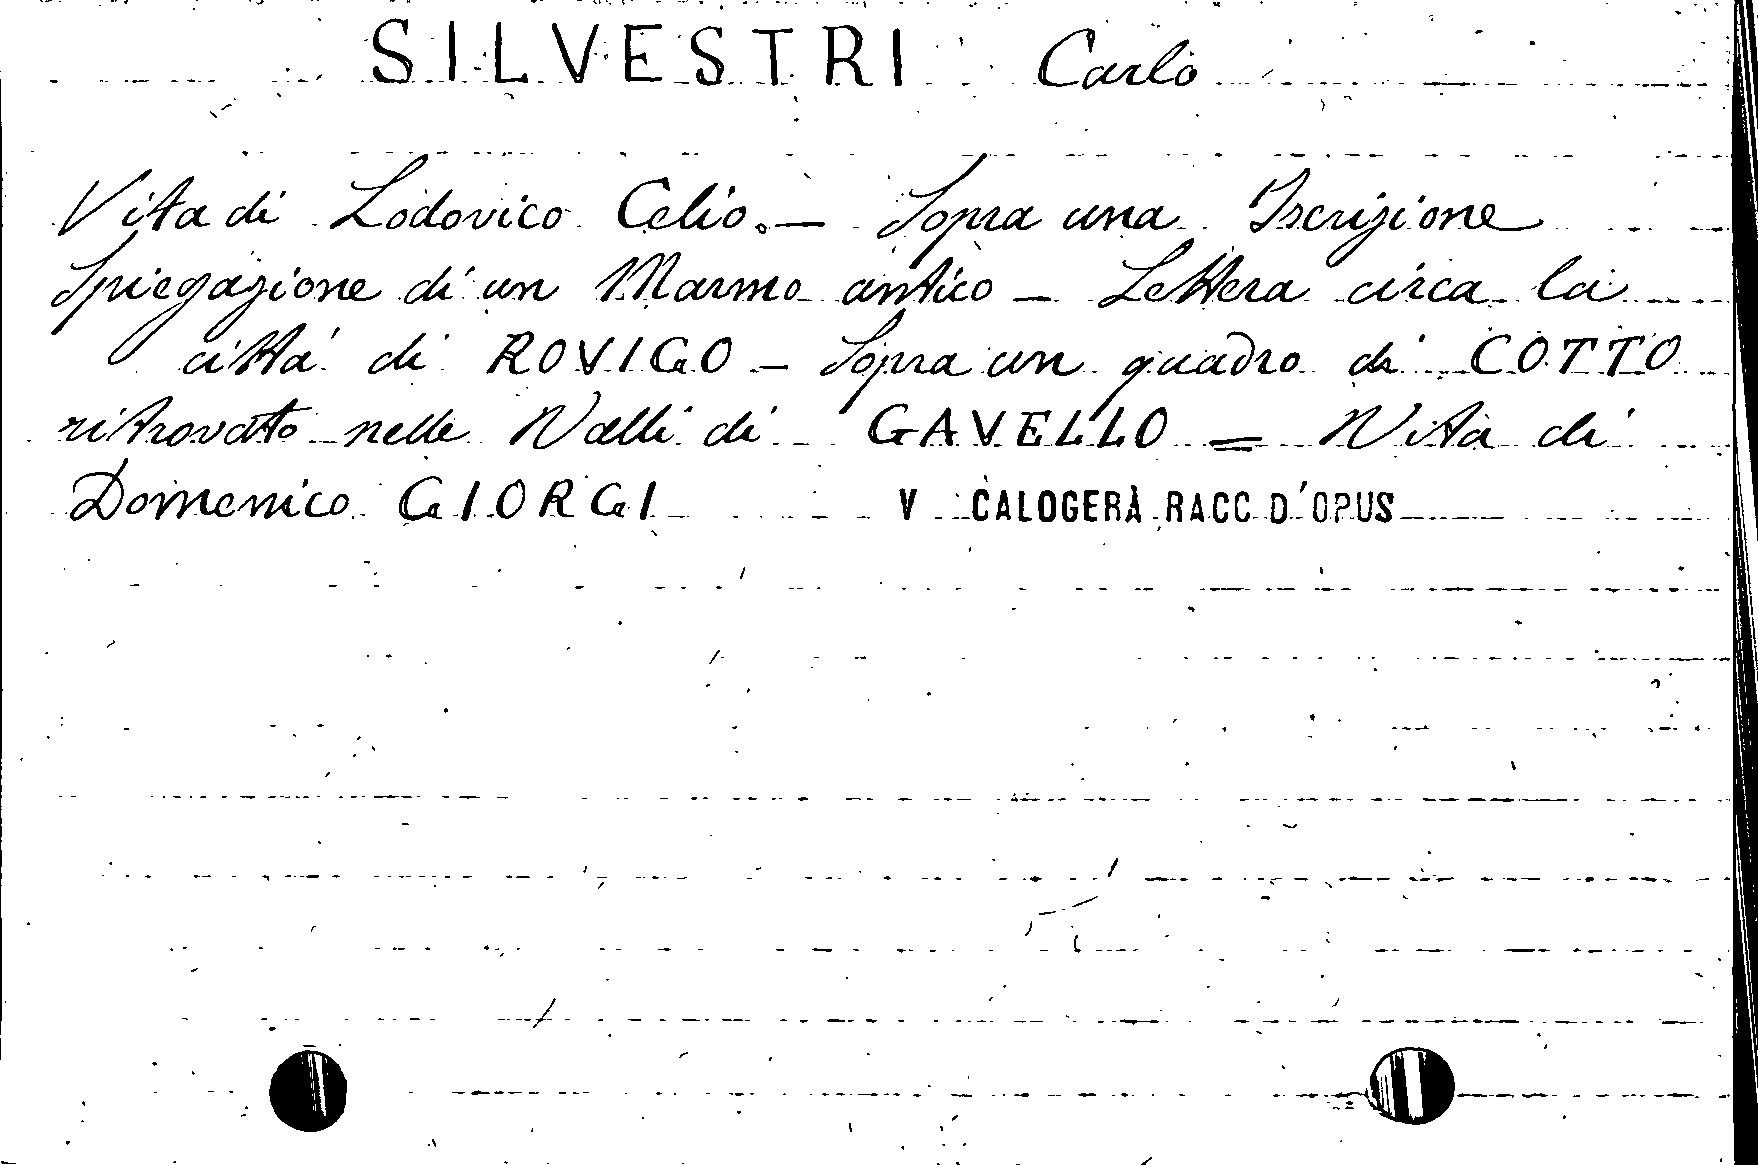 SILVESTRI Carlo
Vita di Lodovico Celio. — Sopra una Iscrizione
Spiegazione di un Marmo antico — Lettera circa la
città di ROVIGO — Sopra un quadro di COTTO
ritrovato nelle Valli di GAVELLO = Vita di
Domenico GIORGI V CALOGERÀ RACC D'OPUS